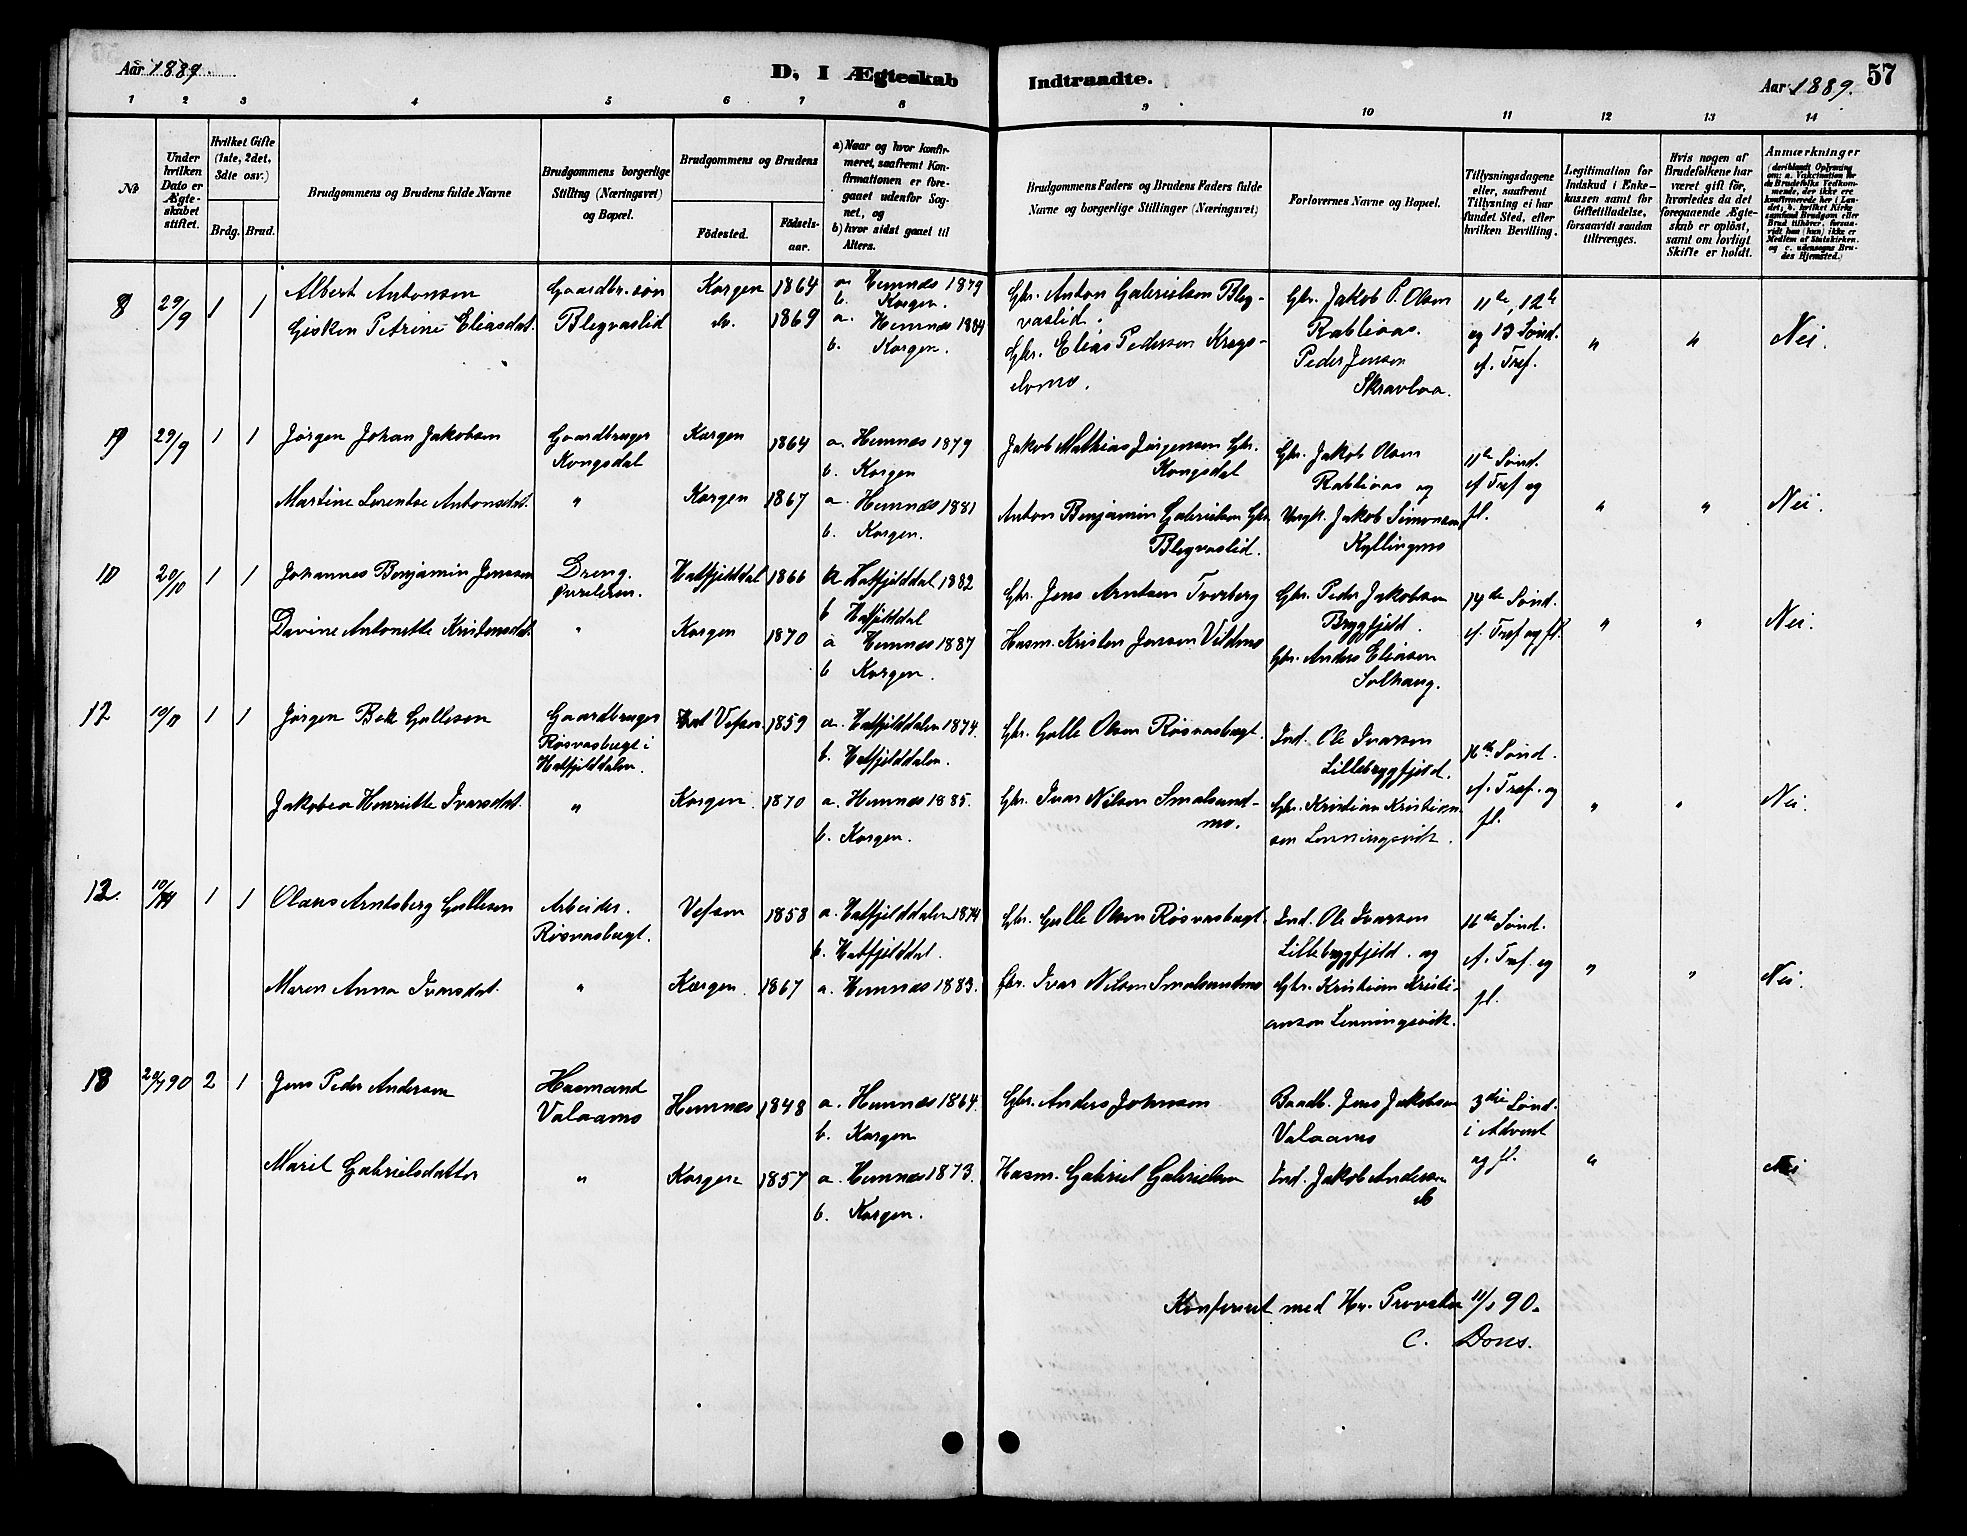 Aar 1889.
D, I Ægteskab Indtraadte.
Aar 1889.
57
1 2 3 4 5 6 7 8 9 10 11 12 13 14
No
Under hvilken Dato er Ægteskabet stiftet.
Hvilket Gifte (1ste, 2det, 3die osv.)
Brdg. Brud.
Brudgommens og Brudens fulde Navne
Brudgommens borgerlige Stilling (Næringsvei) og Bopæl.
Brudgommens og Brudens
Födested. Födsels-aar.
a) Naar og hvor konfirmeret, saafremt Konfirmationen er foregaaet udenfor Sognet, og
b) hvor sidst gaaet til Alters.
Brudgommens Faders og Brudens Faders fulde Navne og borgerlige Stillinger (Næringsvei)
Forlovernes Navne og Bopæl.
Tillysningsdagene eller, saafremt Tillysning ei har fundet Sted, efter hvilken Bevilling.
Legitimation for Indskud i Enkekassen samt for Giftetilladelse, forsaavidt saadan tiltrænges.
Hvis nogen af Brudefolkene har været gift för, hvorledes da det foregaaende Ægteskab er oplöst, samt om lovligt Skifte er holdt.
Anmærkninger
8 29/9 1 1 Albert Antonsen Gaardbr. søn Korgen 1864 a. Hemnes 1879 Gbr. Anton Gabrielsen Bleg- Gbr. Jakob P. Olsen 11te, 12te
b. Korgen. vaslid. Rabliaas. og 13 Sönd.
Gisken Petrine Eliasdat. Blegvaslid do. 1869 a. Hemnes 1884 Gbr. Elias Pedersen Krogs- Peder Jensen ef. Tref. " " Nei.
b. Korgen. domo. Skravlaa.
9 29/9 1 1 Jørgen Johan Jakobsen Gaardbruger Korgen 1864 a. Hemnes 1879 Jakob Mathias Jørgensen Gbr. Gbr. Jakob Olsen 11te Sönd.
Kongsdal b. Korgen Kongsdal Rabliaas og ef. Tref og
Martine Lorentse Antonsdat. " Korgen 1867 a. Hemnes 1881 Anton Benjamin Gabrielsen Gbr. Ungk. Jakob Simonsen fl. " " Nei.
b. Korgen. Blegvaslid. Kyllingmo
10 20/10 1 1 Johannes Benjamin Jenssen Dreng. Hatfjelddal 1866 a Hatfjelddal 1882 Gbr. Jens Arntsen Tverberg Gbr. Peder Jakobsen 14de Sönd.
b Hatfjelddal Bryggfjeld. ef. Tref og fl. " " Nei.
Davine Antonette Kristensdat. " Korgen 1870 a Hemnes 1887 Husm. Kristen Jensen Vildmo Gbr. Anders Eliasen
b Korgen. Solhaug.
12 10/11 1 1 Jørgen Bek Gullesen Gaardbruger Vefsen 1859 a. Hatfjelddalen 1874. Gbr. Gulle Olsen Røsvasbugt. Ind. Ole Ivarsen 16de Sönd.
Røsvasbugt i b. Hatfjelddalen. Lillebryggfjeld. ef. Tref. og
Hatfjelddalen.
Jakobea Henriette Ivarsdat. " Korgen 1870 a. Hemnes 1885. Gbr. Ivar Nilsen Smalsund- Gbr. Kristian Kristian- fl. " " Nei.
b. Korgen. mo. sen Lenningsvik.
12. 10/11 1 1 Olaus Arntsberg Gullesen Arbeider. Vefsen 1858 a. Hatfjelddalen 1874 Gbr. Gulle Olsen Røsvasbugt. Ind. Ole Ivarsen 16de Sönd.
Røsvasbugt. b. Hatfjelddal. Lillebryggfjeld. og ef. Tref. og
Maren Anna Ivarsdat. " Korgen 1867 a. Hemnes 1883. Gbr. Ivar Nilsen Smalsundmo Gbr. Kristian Kristi- fl. " " Nei.
ansen Lenningsvik.
13 90 2 1 Jens Peder Andersen Husmand Hemnes 1848 a. Hemnes 1864. Gbr. Anders Johnsen Baadb. Jens Jakobsen 3die Sönd.
Valaamo b. Korgen Valaamo i Advent
Marit Gabrielsdatter " Korgen 1857 a. Hemnes 1873. Husm. Gabriel Gabrielsen Ind. Jakob Andersen og fl. " Nei
b. Korgen. do
Konfereret med Hr. Provsten 11/1 90.
C. Dons.